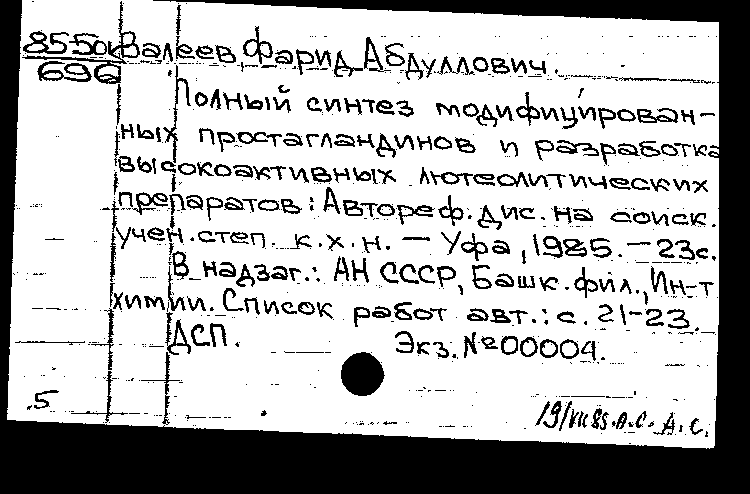 85-50к Валеев, Фарид Абдуллович.
696
Полный синтез модифицирован-
ных простагландинов и разработка
высокоактивных лютеолитических
препаратов: Автореф. дис. на соиск.
учен. степ. к.х.н. — Уфа, 1985. — 23с.
В надзаг.: АН СССР, Башк. фил., Ин-т
химии. Список работ авт.: с. 21-23.
ДСП. Экз. №00004.
.5
19/VII 85. А.С. А.С.